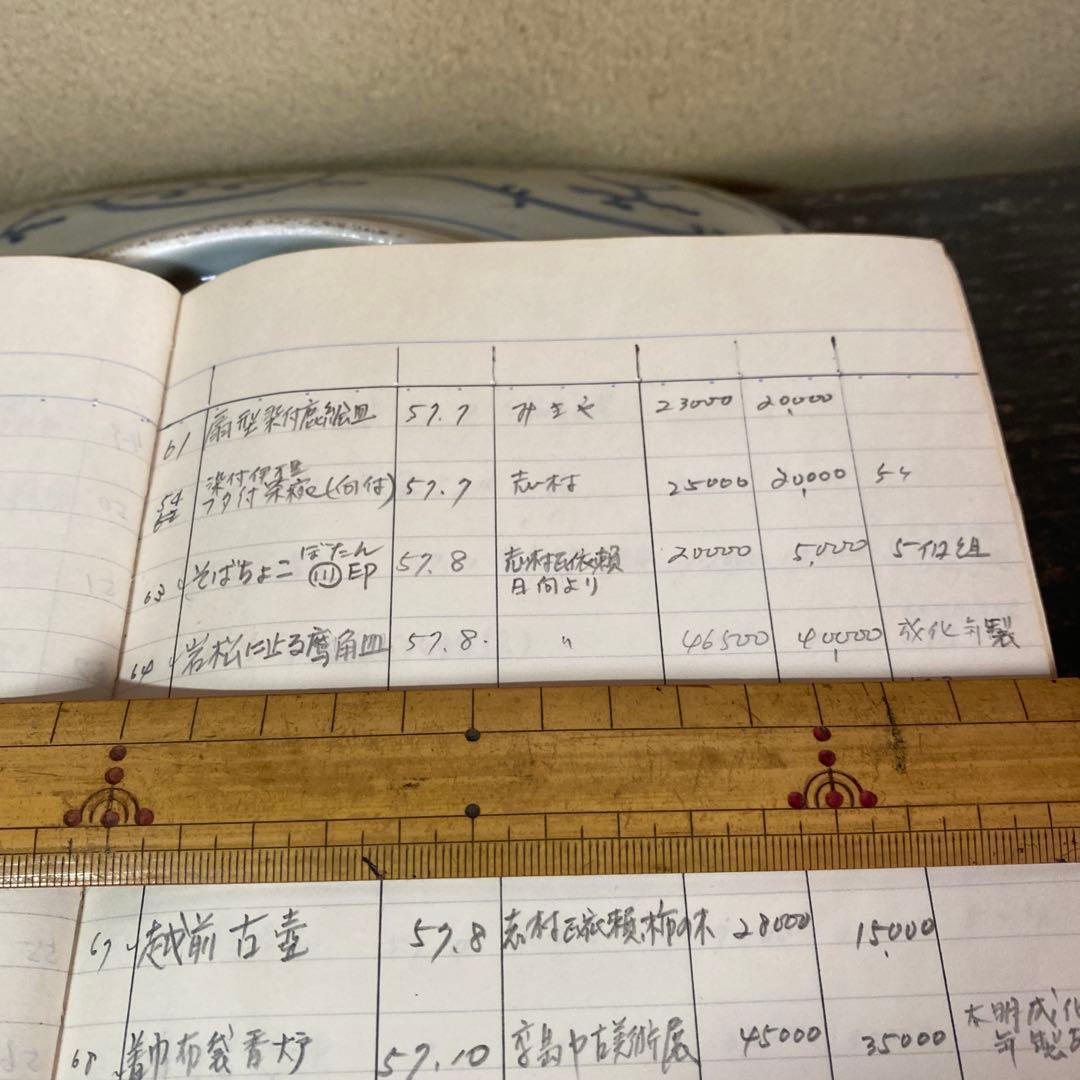 61 扇型染付鹿絵皿 57.7 みまや 23000 20,000
染付伊万里
54 フタ付茶碗(向付) 57.7 志村 25000 20,000 5ケ
ぼたん
63 そばちょこ EP 57.8 志村氏依頼 20000 5,000 5個組
日向より
64 岩松に止る鷹角皿 57.8. 〃 46500 40,000 成化年製
67 越前古壺 57.8 志村氏依頼 柿の木 28000 15,000
大明成化
68 着巾布袋香炉 57.10 中古美術展 45000 35000 年製